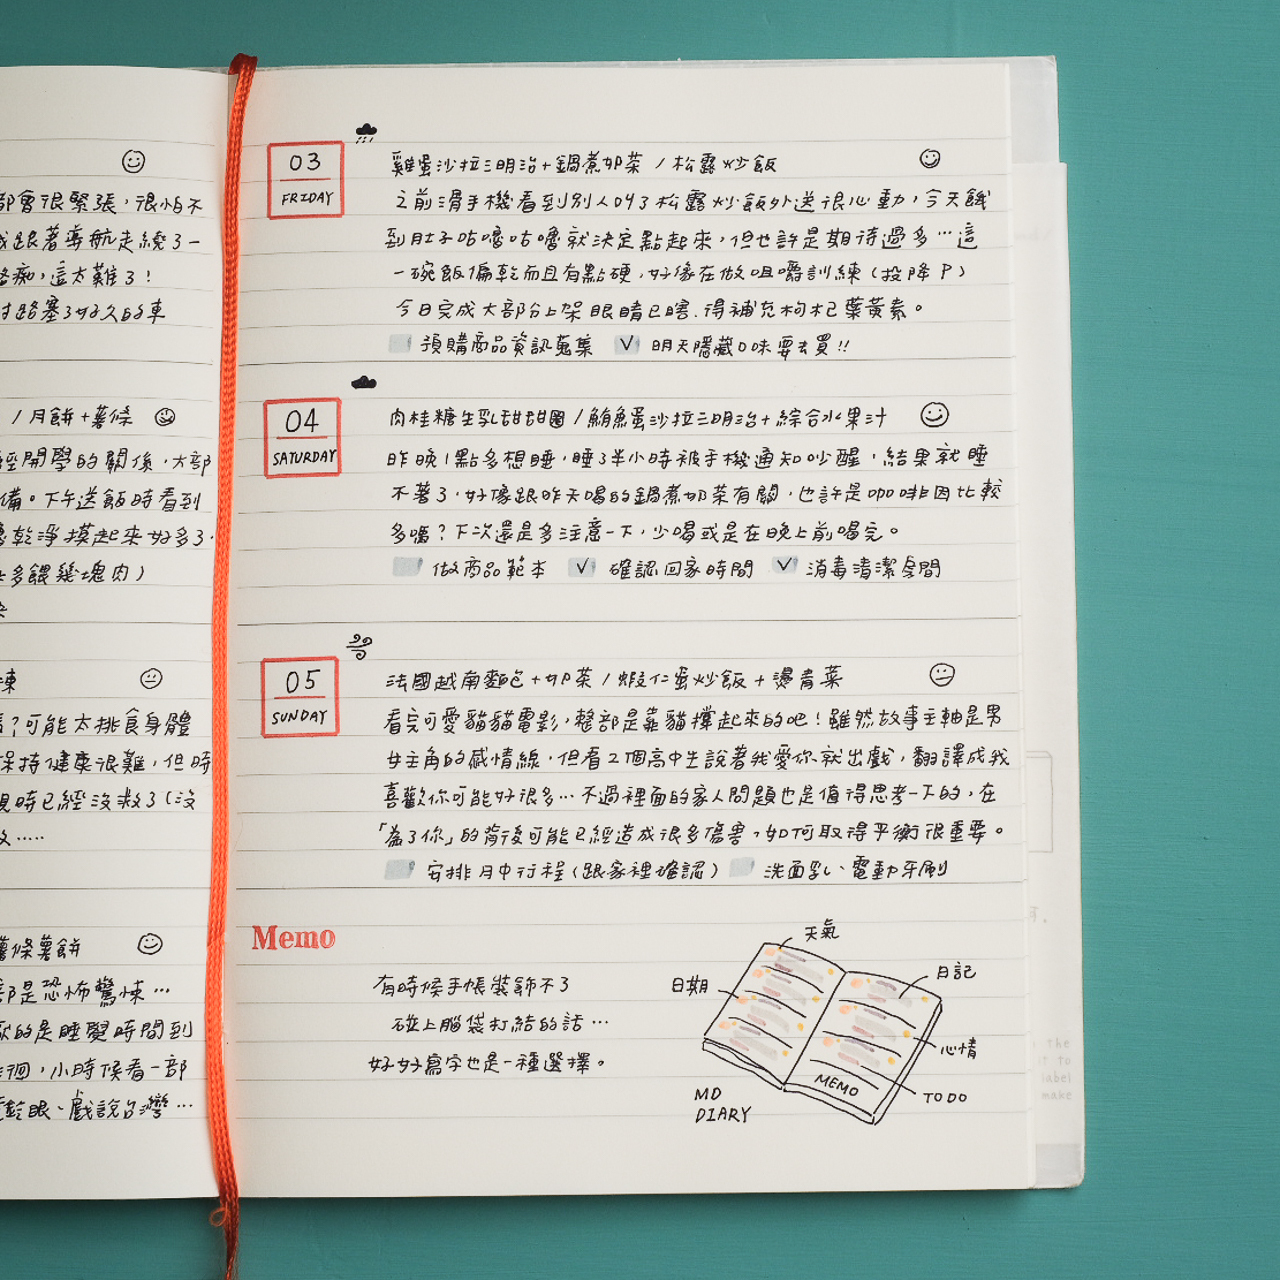 都會很緊張，很怕不
或跟著導航走繞了一
路痴，這太難了！
寸路塞了好久的車
/月餅+薯條
經開學的關係，大部
備。下午送飯時看到
乾淨摸起來好多了，
多餵幾塊肉）
可能太挑食身體
保持健康很難，但時
現時已經沒救了（沒
薯條薯餅
部是恐怖驚悚…
的是睡覺時間到
徊，小時候看一部
眼、戲說台灣…
03
FRIDAY
雞蛋沙拉三明治+鍋煮奶茶/松露炒飯
之前滑手機看到別人叫了松露炒飯外送很心動，今天餓
到肚子咕嚕咕嚕就決定點起來，但也許是期待過多…這
一碗飯偏乾而且有點硬，好像在做咀嚼訓練（投降P）
今日完成大部分上架眼睛已瞎，得補充枸杞葉黃素。
預購商品資訊蒐集 ✓ 明天隱藏口味要去買!!
04
SATURDAY
肉桂糖生乳甜甜圈/鮪魚蛋沙拉三明治+綜合水果汁
昨晚1點多想睡，睡了半小時被手機通知吵醒，結果就睡
不著了，好像跟昨天喝的鍋煮奶茶有關，也許是咖啡因比較
多嗎？下次還是多注意一下，少喝或是在晚上前喝完。
做商品範本 ✓ 確認回家時間 ✓ 消毒清潔房間
05
SUNDAY
法國越南麵包+奶茶/蝦仁蛋炒飯+燙青菜
看完可愛貓貓電影，整部是靠貓撐起來的吧！雖然故事主軸是男
女主角的感情線，但看2個高中生說著我愛你就出戲，翻譯成我
喜歡你可能好很多…不過裡面的家人問題也是值得思考一下的，在
「為了你」的背後可能已經造成很多傷害，如何取得平衡很重要。
安排月中行程（跟家裡確認） 洗面乳、電動牙刷
Memo
有時候手帳裝飾不了
碰上腦袋打結的話…
好好寫字也是一種選擇。
天氣
日期
日記
心情
TODO
MEMO
MD
DIARY
the
to
label
make